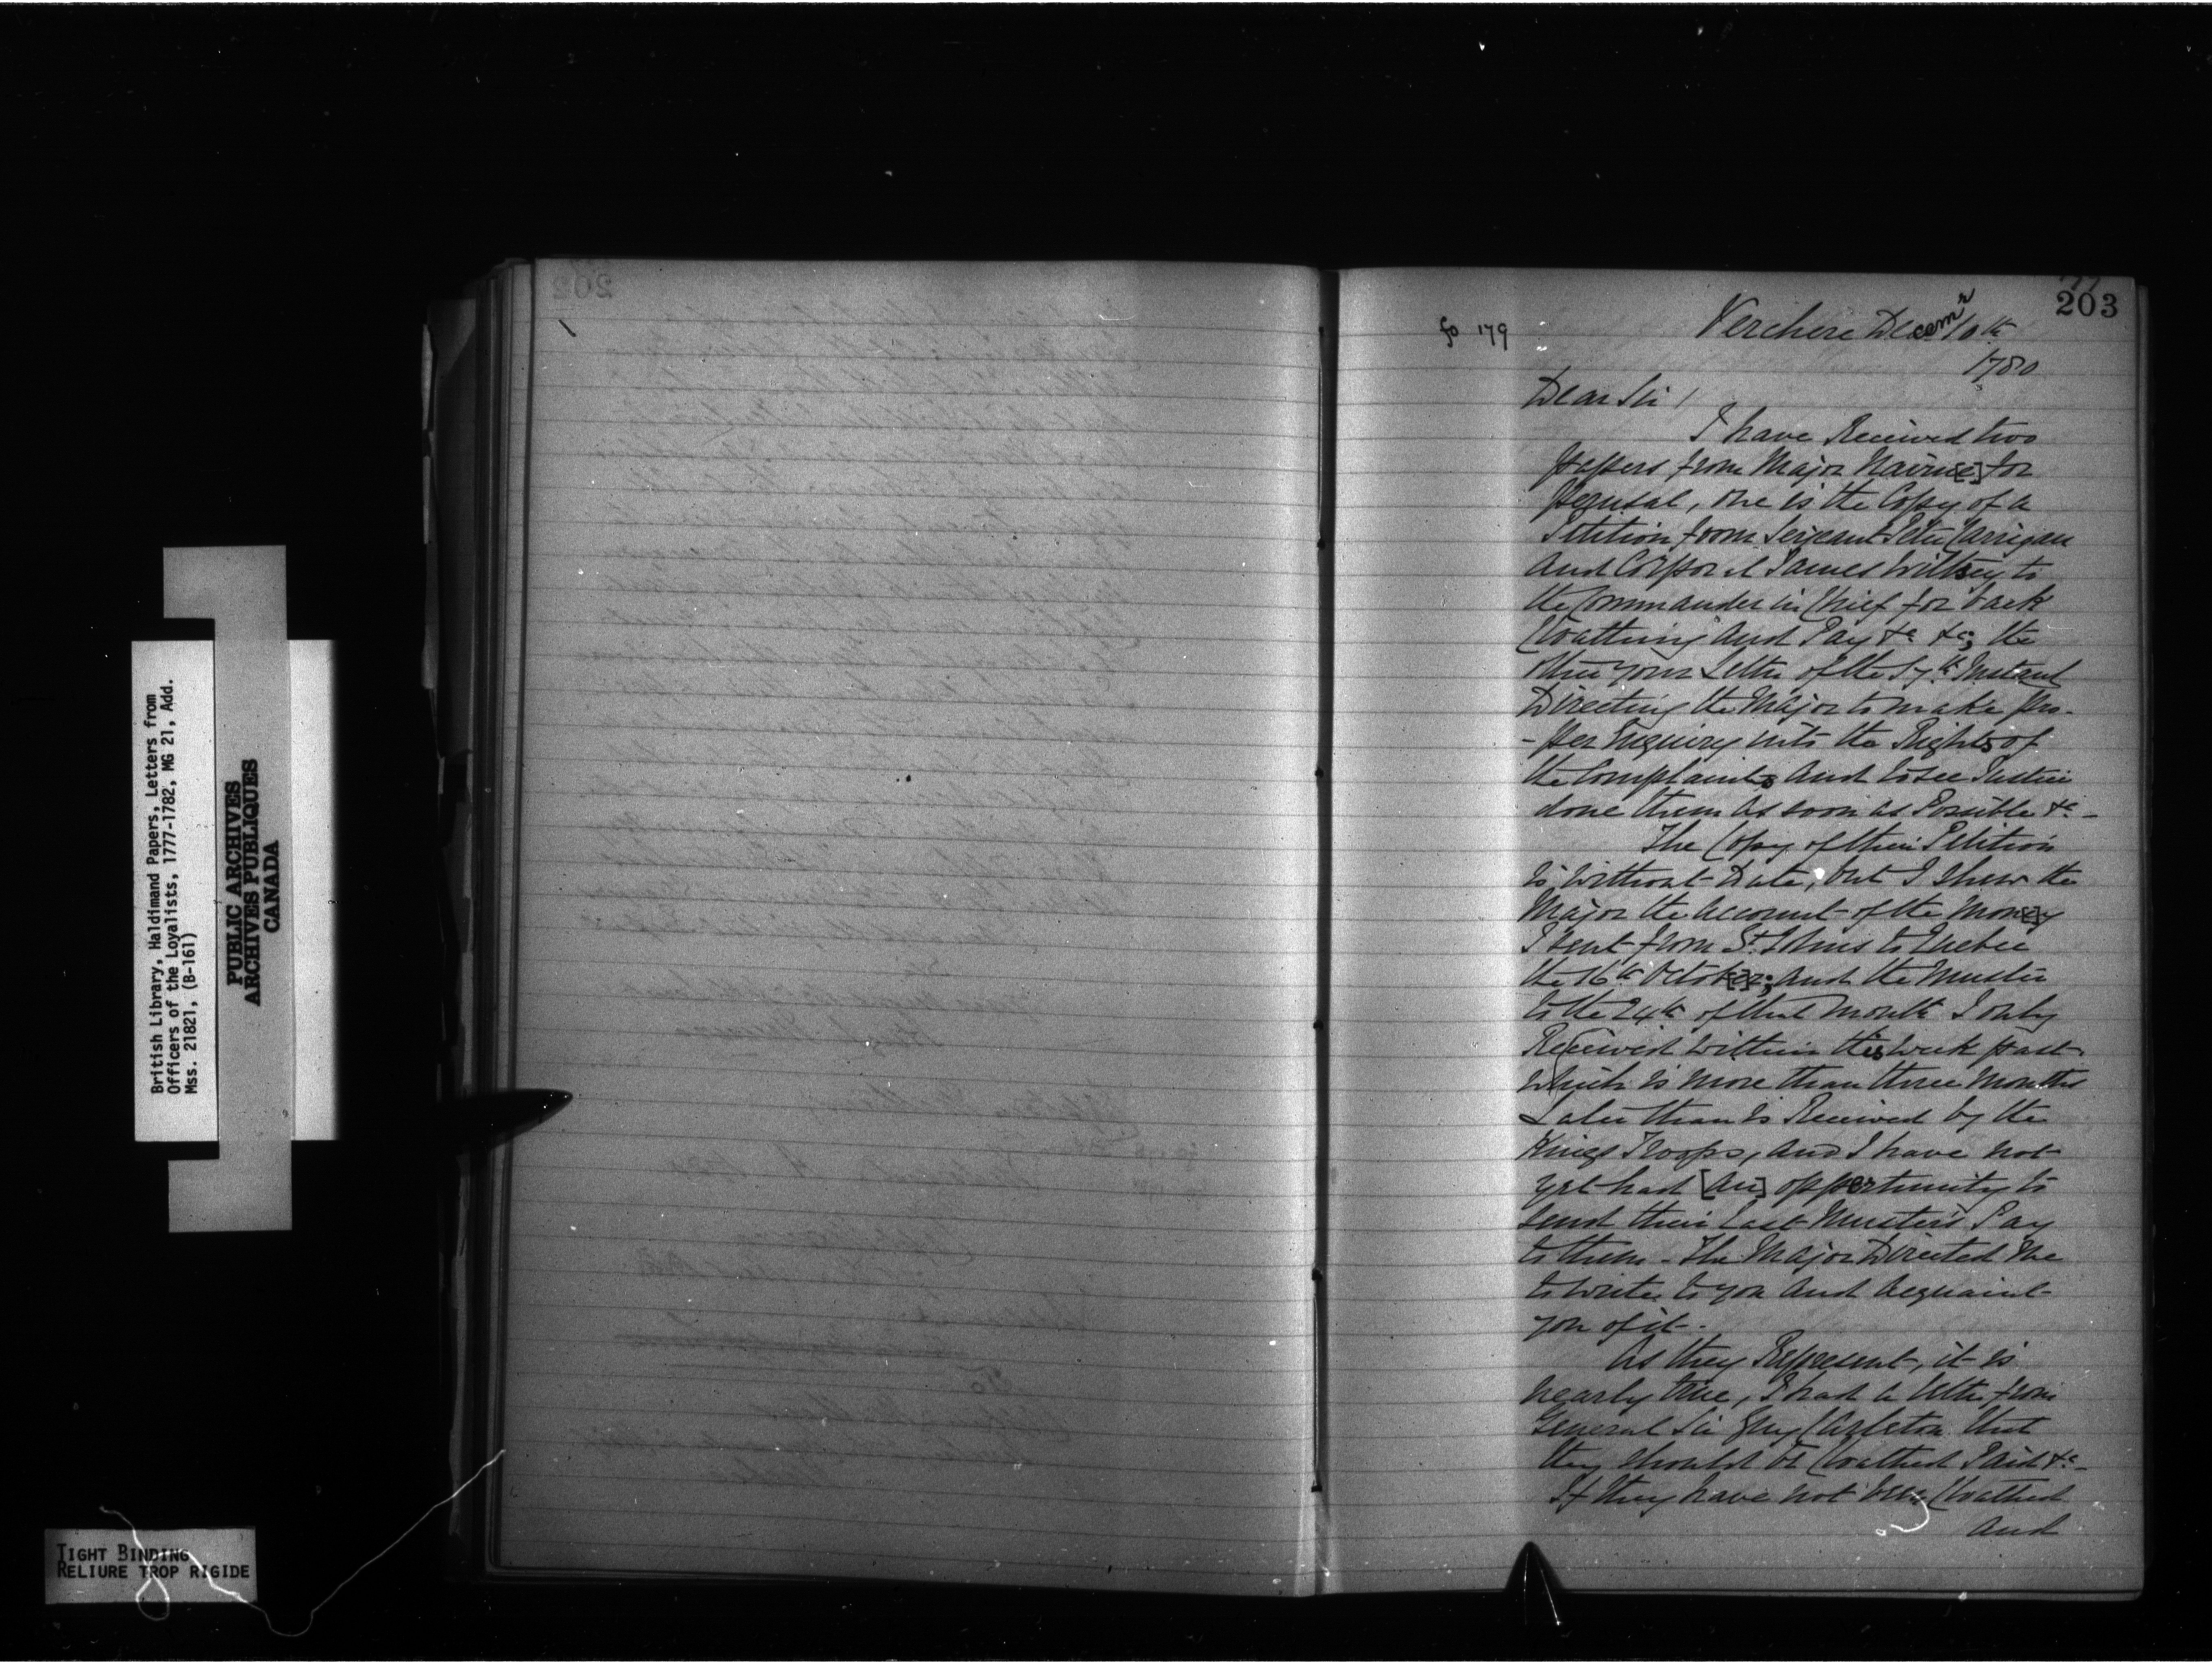 British Library, Haldimand Papers, Letters from
Officers of the Loyalists, 1777-1782, MG 21, Add.
Mss. 21821, (B-161)
PUBLIC ARCHIVES
ARCHIVES PUBLIQUES
CANADA
TIGHT BINDING
RELIURE TROP RIGIDE
202
203
fo 179
Verchere Decemr 10th
1780
Dear Sir /
I have Received two
papers from Major Nairn[e] for
perusal, one is the Copy of a
Petition from Serjeant Peter Carrigan
And Corporal James Wiltsey to
the Commander in Chief for back
Cloathing And Pay &c &c; the
other your Letter of the Instant
Directing the Major to make pro-
-per Enquiry into the Rights of
the Complaints And to see Justice
done them as soon as Possible &c -
The Copy of their Petition
is without Date, but I shew the
Major the Account of the Mon[e]y
I sent from St Johns to Quebec
the 16th Octob[e]r; and the Muster
to the 24th of that Month I only
Received within this week past
which is more than three Months
Later than is Received by the
Kings Troops, And I have not
yet had [an] opportunity to
send their Last Musters Pay
to them - the Major Directed me
to write to you And Acquaint
you of it -
As they Represent, it is
nearly true, I had a letter from
General Sir Guy Carleton that
they should be Cloathed Paid &c -
If they have not been Cloathed
And